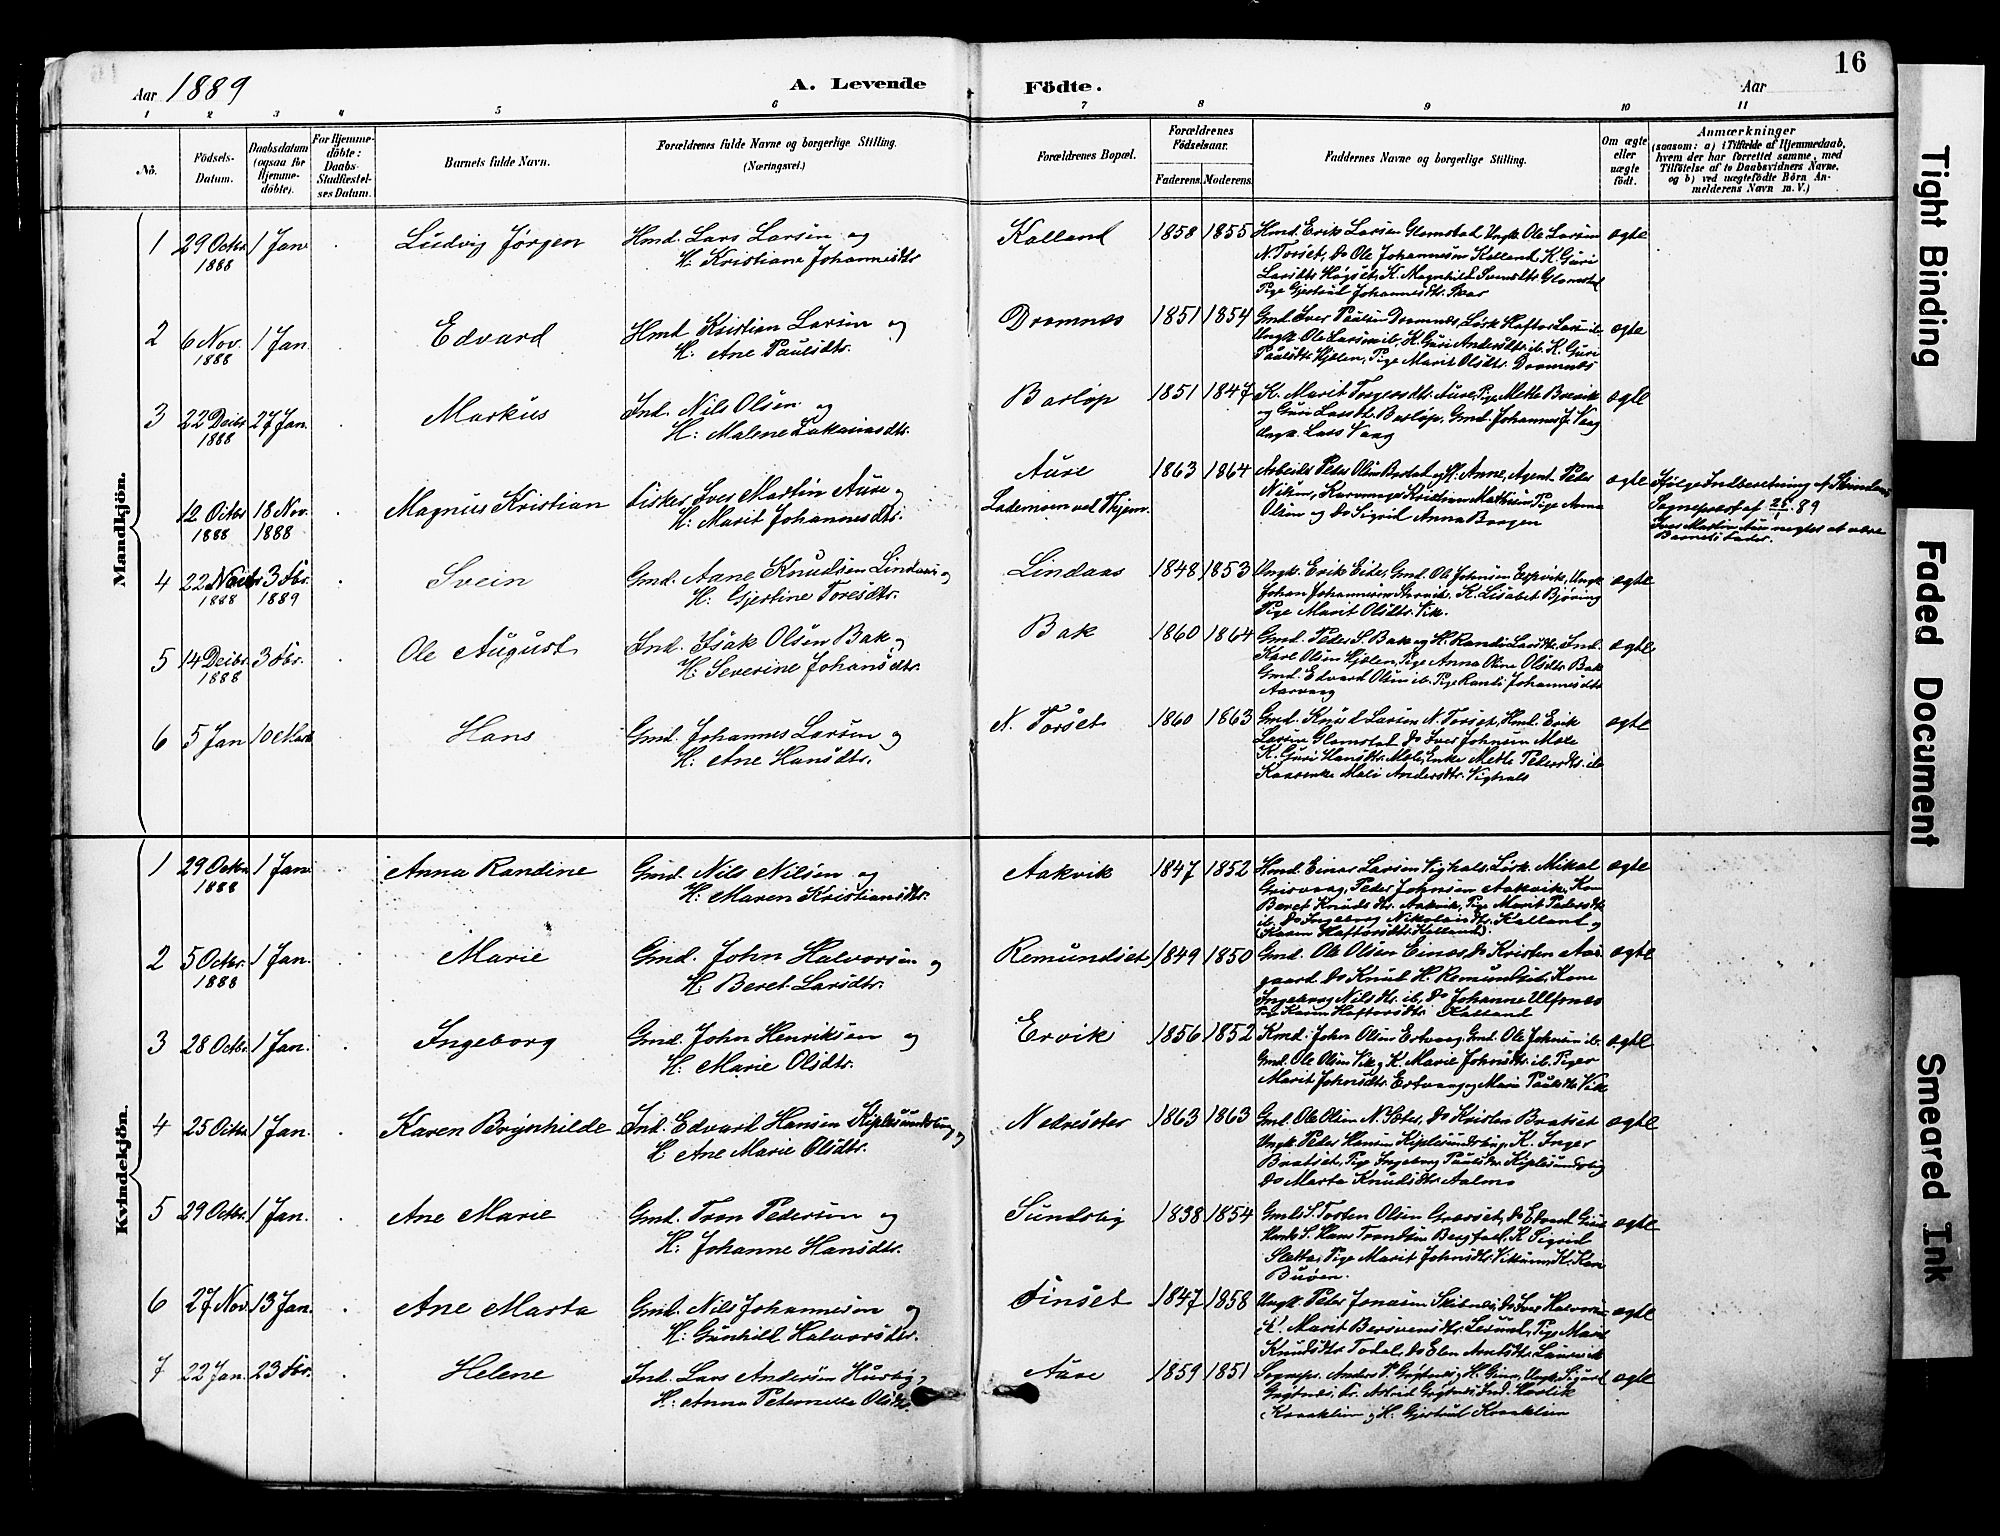 16
Aar 1889
A. Levende Födte.
Aar
1 2 3 4 5 6 7 8 9 10 11
No.
Födsels-Datum.
Daabsdatum (ogsaa for Hjemme-döbte).
For Hjemme-döbte: Daabs-Stadfæstel-ses Datum.
Barnets fulde Navn.
Forældrenes fulde Navne og borgerlige Stilling. (Næringsvei.)
Forældrenes Bopæl.
Forældrenes Födselsaar.
Faderens. Moderens.
Faddernes Navne og borgerlige Stilling.
Om ægte eller uægte födt.
Anmærkninger
(saasom: a) i Tilfælde af Hjemmedaab, hvem der har forrettet samme, med Tilföielse af to Daabsvidners Navne, og b) ved uægtefödte Börn An-melderens Navn m. V.)
Mandkjön.
1 29 Octbr 1888 1 Jan Ludvig Jørgen Hmd. Lars Larsen og
H: Kristiane Johannesdtr
Kalland 1858 1855 Hmd. Erik Larsen Glomstad, Ungk. Ole Larsen
N. Torset, Do Ole Johannesen Kalland, K. Guri
Larsdtr Høgset, K. Magnhild Svendsdtr. Glomstad
Pige Gjertrud Johannesdtr. Skar
ægte
2 6 Nov. 1888 1 Jan. Edvard Hmd Kristian Larsen og
H: Ane Paulsdtr.
Dromnæs 1851 1854 Gmd. Iver Paulsen Dromnæs, Løsk Haftor Larsen ib.
Ungk Ole Larsen ib, H. Guri Andersdtr ib. K. Guri
Paulsdtr Hjelen, Pige Marit Olsdtr. Dromnæs
ægte
3 22 Decbr 1888 27 Jan. Markus Ind. Nils Olsen og
H: Malene Zakariasdtr.
Barløp 1851 1847 K. Marit Torgersdtr. Aure, Pige Mette Brevik
og Guri Larsdtr. Barløp, Gmd. Johannes J. Vaag
Ungk. Lars Vaag
ægte
12 Octbr 1888 18 Nov. 1888 Magnus Kristian Fisker Iver Martin Aure og
H: Marit Johannesdtr.
Aure
Lademoen ved Thjem. 1863 1864 Arbeider Peter Olsen Barstad og H. Anne, Agent Peder
Nilsen, Kristian Mathisen Pige Anna
Olsen og Do Sigrid Anna Borgen
ægte
Ifølge Indberetning af Strindens
Sognepræst af 28/1 89
Iver Martin Aure negter at være
Barnets Fader.
4 22 1888 3 Fbr. 1889 Svein Gmd. Aane Knudsen Lindaas og
H: Gjertine Toresdtr.
Lindaas 1848 1853 Ungk. Erik Eide, Gmd. Ole Johnsen Espvik, Ungk
Johan Johannesen K. Lisabet Bjøring
Pige Marit Olsdtr. Vik.
ægte
5 14 Decbr 1888 3 Fbr. Ole August Ind. Isak Olsen Bak og
H: Severine Johansdtr.
Bak 1860 1864 Gmd. Peder S. Bak og H. Randi Larsdtr, Ind.
Karl Olsen Hjelen, Pige Anna Oline Olsdtr. Bak
Gmd. Edvard Olsen ib. Pige Randi Johannesdtr
Aarvaag
ægte
6 5 Jan 10 Marts Hans Gmd. Johannes Larsen og
H: Ane Hansdtr.
N. Torset 1860 1863 Gmd. Knud Larsen N. Torset, Hmd. Erik
Larsen Glomstad, Do Iver Johnsen Mele
K. Guri Hansdtr. Mele, Enke Mette Pedersdtr. ib
Kaarenke Mali Andersdtr. Vighals
ægte
Kvindekjön.
1 29 Octbr 1888 1 Jan Anna Randine Gmd. Nils Nilsen og
H: Maren Kristiansdtr.
Aakvik 1847 1852 Hmd. Einar Larsen Vighals, Løsk. Mikal
Grisvaag, Peder Johnsen Aakvik, Kone
Beret Knudsdtr. Aakvik, Pige Marit Pedersdtr
ib, Do Ingeborg Nikolaisdtr. Kalland og
(Karen Haftorsdtr. Kalland).
ægte
2 5 Octbr. 1888 1 Jan. Marie Gmd. John Halvorsen og
H: Beret Larsdtr.
Remundset 1849 1850 Gmd. Ole Olsen Einar, Do Kristen Aas-
gaard, Do Knut H. Remundset, Kone
Ingeborg Nilsdtr. ib, Do Johanne Ulfsnæs
Pige Karen Haftorsdtr. Kalland
ægte
3 28 Octbr. 1 Jan. Ingeborg Gmd. John Henriksen og
H. Marie Olsdtr.
Ervik 1856 1852 Kmd. John Olsen Ertvaag, Gmd. Ole Johnsen ib.
Gmd. Ole Olsen Vik og K. Marie Johnsdtr. ib. Piger
Marit Johnsdtr. Ertvaag og Mari Paulsdtr. Vik
ægte
4 25 Octbr. 1 Jan. Karen Brynhilde Ind. Edvard Hansen Kiplesundsbug og
H. Ane Marie Olsdtr.
Nedresæter 1863 1863 Gmd. Ole Olsen N. Sæter, Do Kristen Bratset
Ungk. Peder Hansen Kiplesundsbug, K. Inger
Bratset, Pige Ingeborg Paulsdtr Kiplesundsbug
Do Marta Knudsdtr. Aalmo
ægte
5 29 Octbr. 1 Jan. Ane Marie Gmd. Tron Pedersen og
H: Johanne Hansdtr.
Sundsbug 1838 1854 Gmds S. Torsten Olsen Grønset, Do Edvard
S. Hans Trondsen K. Sigrid
Sletta, Pige Marit Johnsdtr. K. Karen
Buøen.
ægte
6 27 Nov. 13 Jan. Ane Marta Gmd. Nils Johannesen og
H: Gunhild Halvorsdtr.
Finset 1847 1858 Ungk. Peter Jonasen Skibnes, Do Iver Halvorsen
K. Marit Bersvensdtr. Lesund, Pige Marit
Knudsdtr. Todal, Do Elen Arntsdtr. Laurvik
ægte
7 22 Jan. 23 Fbr. Helene Ind. Lars Andersen Husby og
H: Anna Peternella Olsdtr.
Aure 1859 1851 Sognep. Anders P. Grytnes, H. Gine, Ungk. Sigurd
Grytnes, Fr. Astrid Grytnes, Ind. Henrik
Kraaklien og H. Gjertrud Kraaklien
ægte
Tight Binding
Faded Document
Smeared Ink